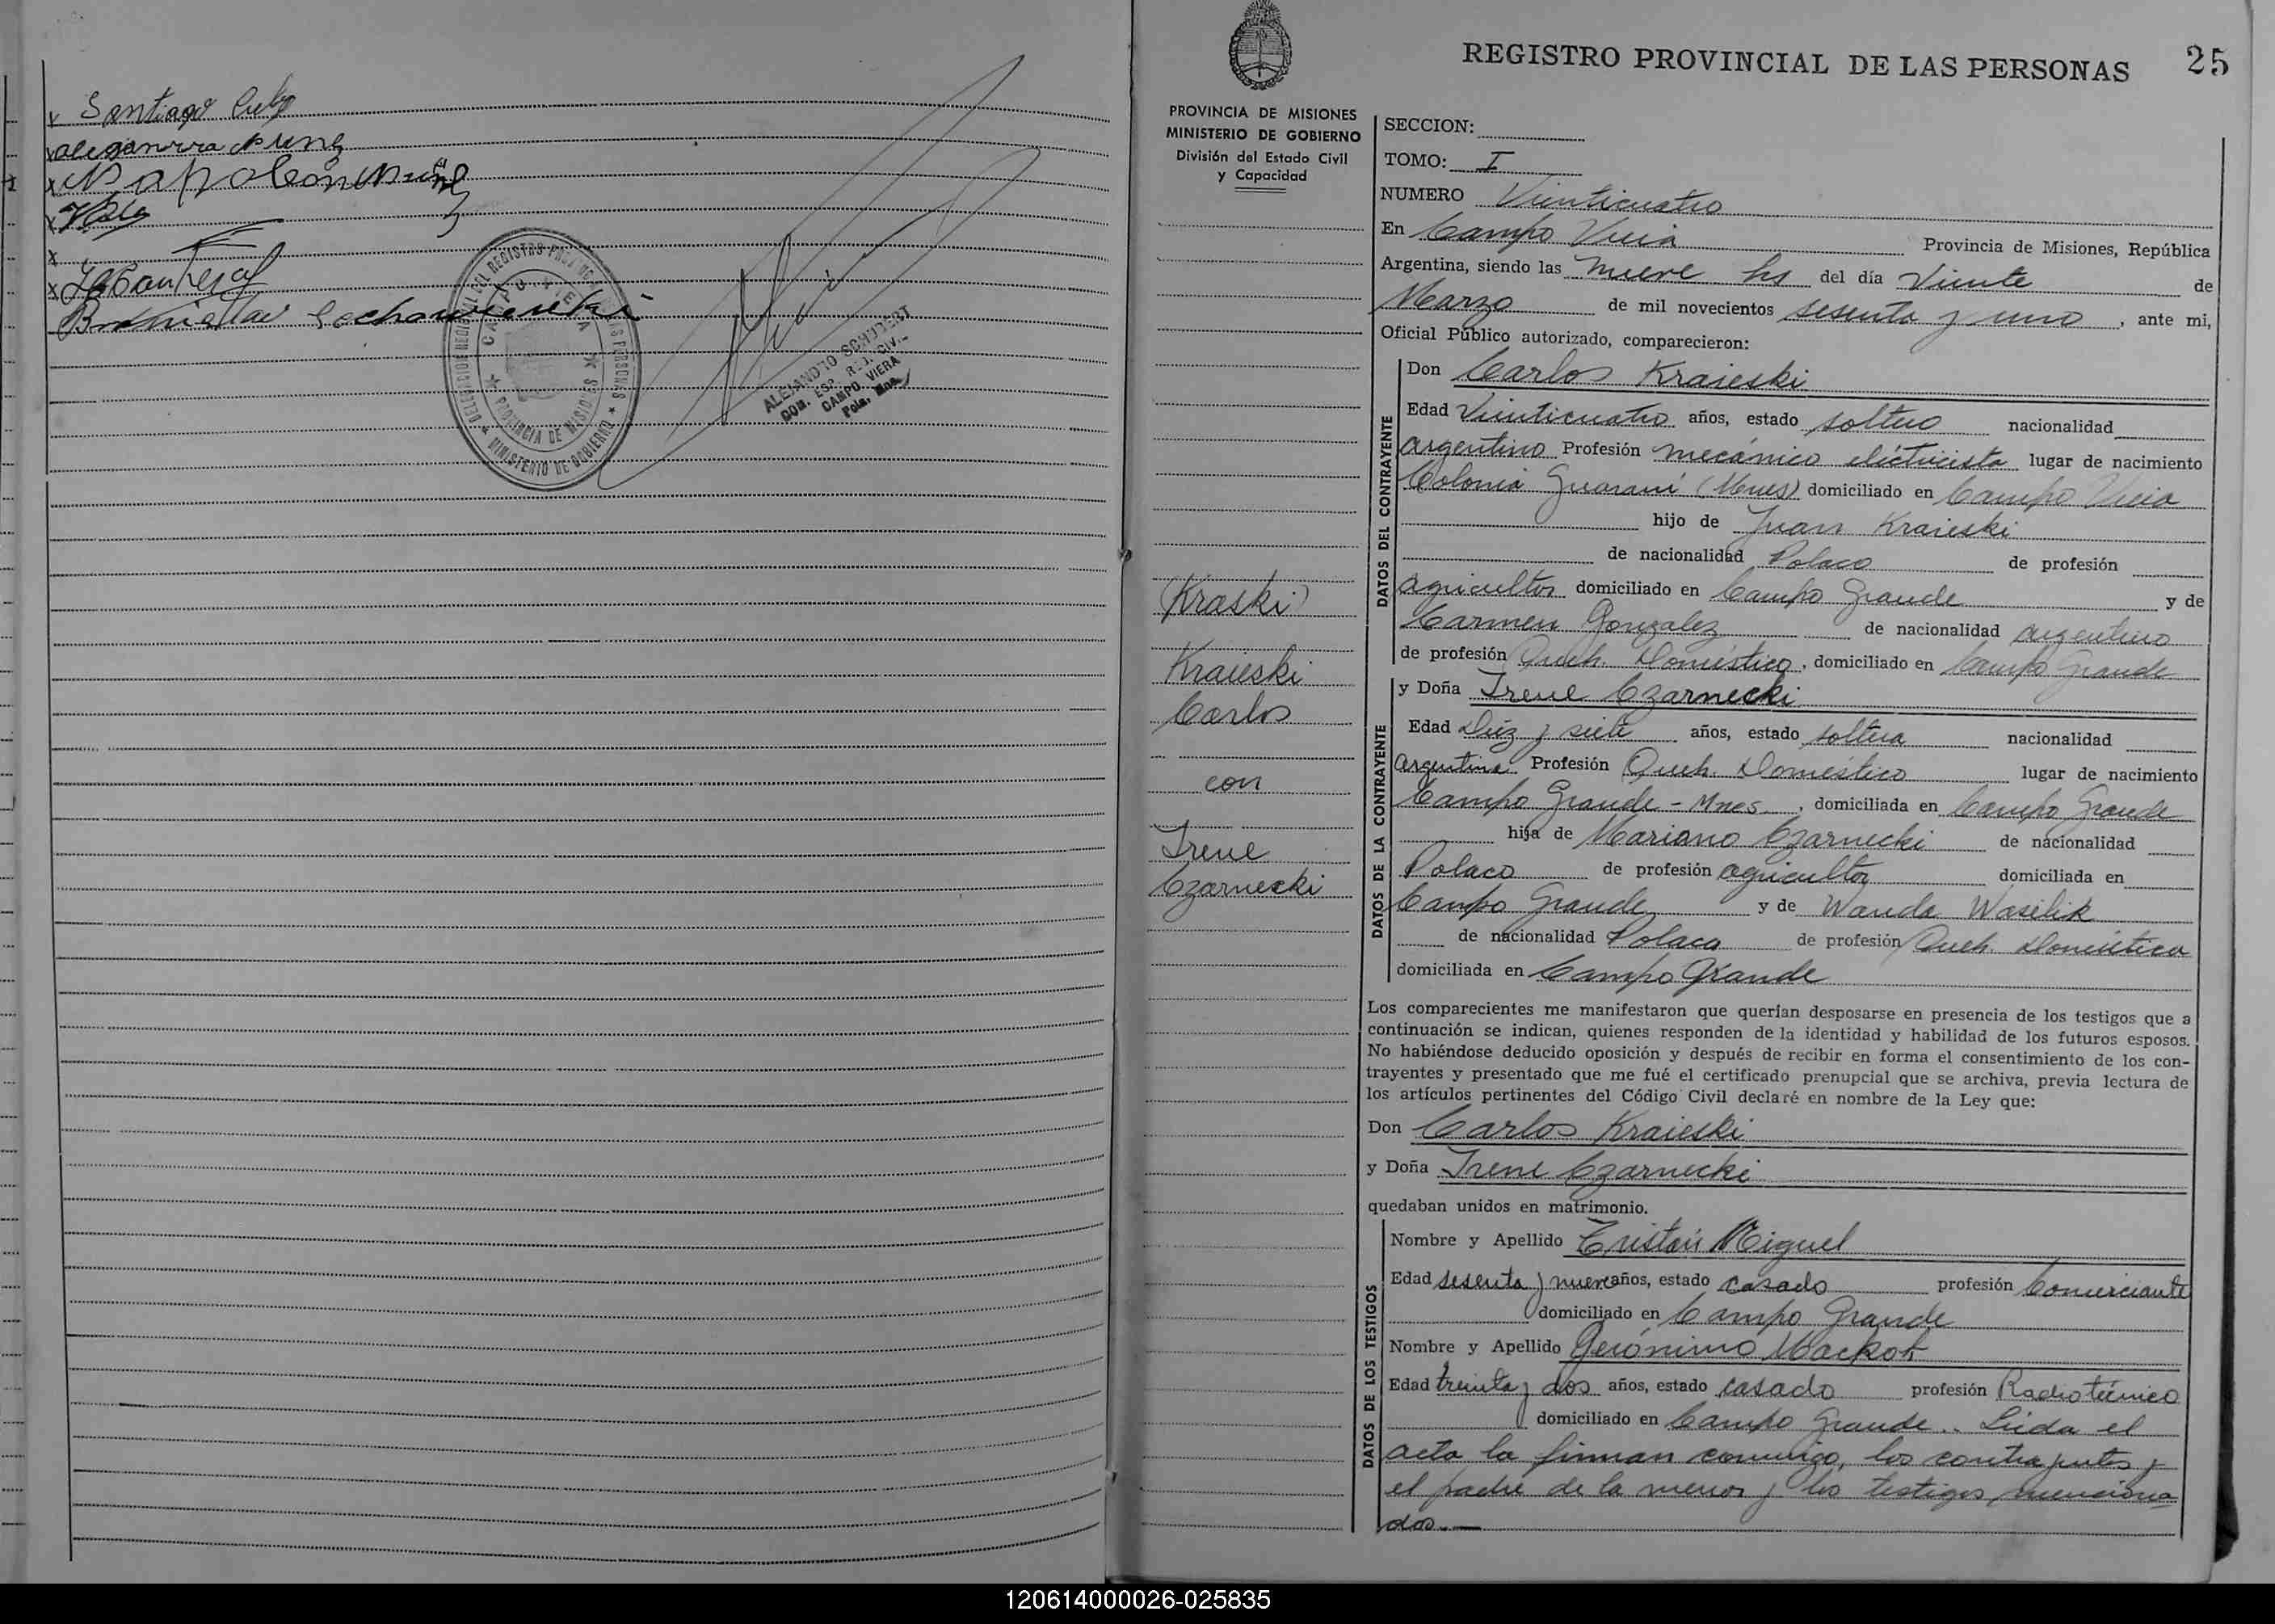 Santiago
Napoleón
DELEGACION REGIONAL DEL REGISTRO PROVINCIAL DE LAS PERSONAS
MINISTERIO DE GOBIERNO
PROVINCIA DE MISIONES
ALEJANDRO SCHUBERT
CAMPO VIERA
REGISTRO PROVINCIAL DE LAS PERSONAS 25
PROVINCIA DE MISIONES
MINISTERIO DE GOBIERNO
División del Estado Civil
y Capacidad
(Kraski)
Kraieski
Carlos
con
Irene
Czarnecki
SECCION:
TOMO: I
NUMERO Veinticuatro
En Campo Viera Provincia de Misiones, República
Argentina, siendo las nueve hs del día Veinte de
Marzo de mil novecientos sesenta y uno, ante mi,
Oficial Público autorizado, comparecieron:
DATOS DEL CONTRAYENTE
Don Carlos Kraieski
Edad Veinticuatro años, estado soltero nacionalidad
argentino Profesión mecánico electricista lugar de nacimiento
Colonia Guaraní (Mnes) domiciliado en Campo Viera
hijo de Juan Kraieski
de nacionalidad Polaco de profesión
agricultor domiciliado en Campo Grande y de
Carmen Gonzalez de nacionalidad argentino
de profesión Queh. Doméstico, domiciliado en Campo Grande
DATOS DE LA CONTRAYENTE
y Doña Irene Czarnecki
Edad Diez y siete años, estado soltera nacionalidad
argentina Profesión Queh. Doméstico lugar de nacimiento
Campo Grande - Mnes., domiciliada en Campo Grande
hija de Mariano Czarnecki de nacionalidad
Polaco de profesión agricultor domiciliada en
Campo Grande y de Wanda Wasilik
de nacionalidad Polaca de profesión Queh. Doméstica
domiciliada en Campo Grande
Los comparecientes me manifestaron que querían desposarse en presencia de los testigos que a
continuación se indican, quienes responden de la identidad y habilidad de los futuros esposos.
No habiéndose deducido oposición y después de recibir en forma el consentimiento de los con-
trayentes y presentado que me fué el certificado prenupcial que se archiva, previa lectura de
los artículos pertinentes del Código Civil declaré en nombre de la Ley que:
Don Carlos Kraieski
y Doña Irene Czarnecki
quedaban unidos en matrimonio.
DATOS DE LOS TESTIGOS
Nombre y Apellido Tristán Miguel
Edad sesenta y nueve años, estado casado profesión Comerciante
domiciliado en Campo Grande
Nombre y Apellido Gerónimo Mackot
Edad treinta y dos años, estado casado profesión Radiotécnico
domiciliado en Campo Grande.. Leida el
acta la firman conmigo, los contrayentes y
el padre de la menor y los testigos menciona
dos.—
120614000026-025835